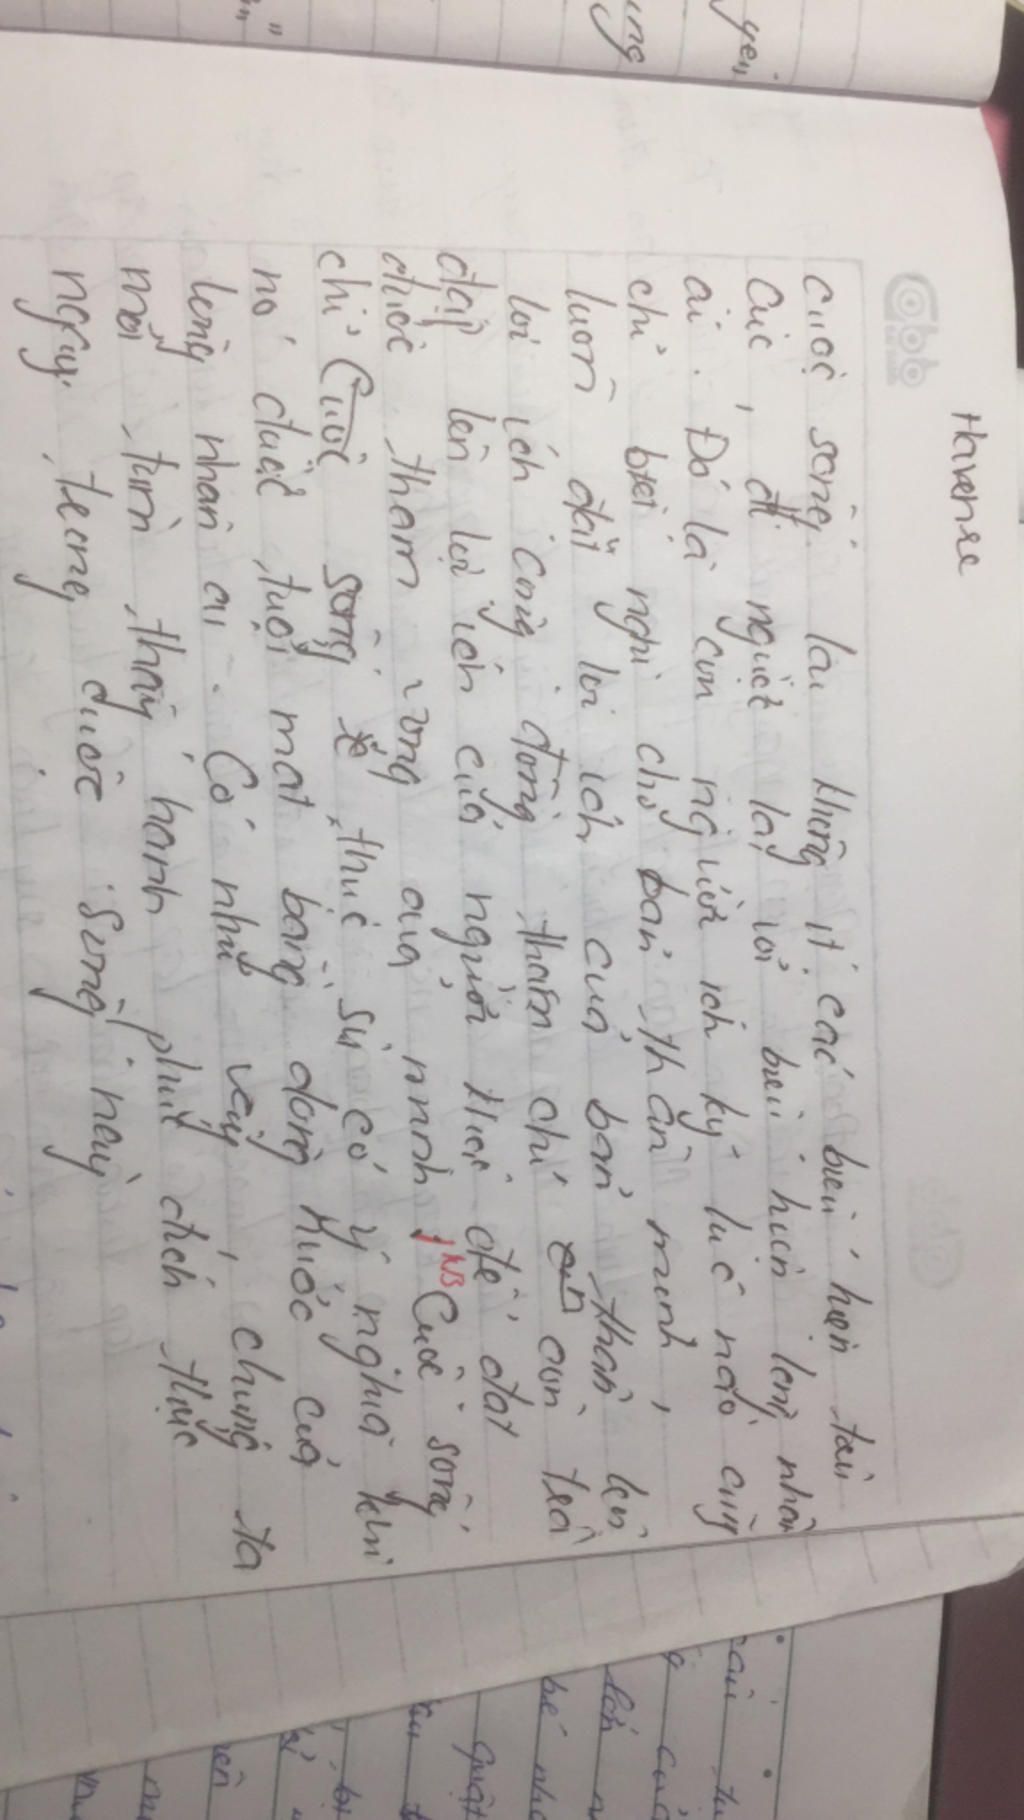 Havense
cuộc sống lại không ít các biểu hiện tiêu
cực, đi ngược lại với biểu hiện lòng nhân
ái. Đó là con người ích kỷ lúc nào cũng
chỉ biết nghĩ cho bản thân mình,
luôn đặt lợi ích của bản thân lên
lợi ích cộng đồng thậm chí còn trà
đạp lên lợi ích của người khác để đạt
được tham vọng của mình, NB Cuộc sống
chỉ Cuộc sống thực sự có ý nghĩa khi
nó được tưới mát bằng dòng nước của
lòng nhân ái. Có như vậy, chúng ta
mới tìm thấy hạnh phúc đích thực
ngay trong cuộc sống này
yên
ung
bé nhỏ
quật